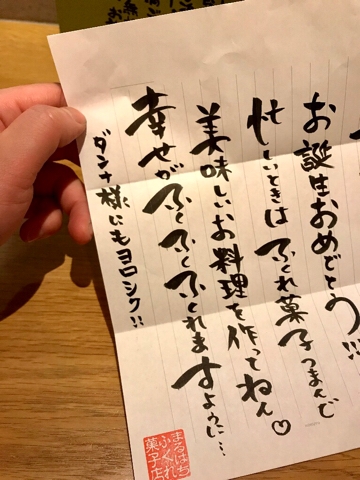 お誕生おめでとう!!!
忙しいときはふくれ菓子つまんで
美味しいお料理を作ってねん♡
幸せがふくふくふくれますように…
ダンナ様にもヨロシク!!
まるはち
ふくれ
菓子店